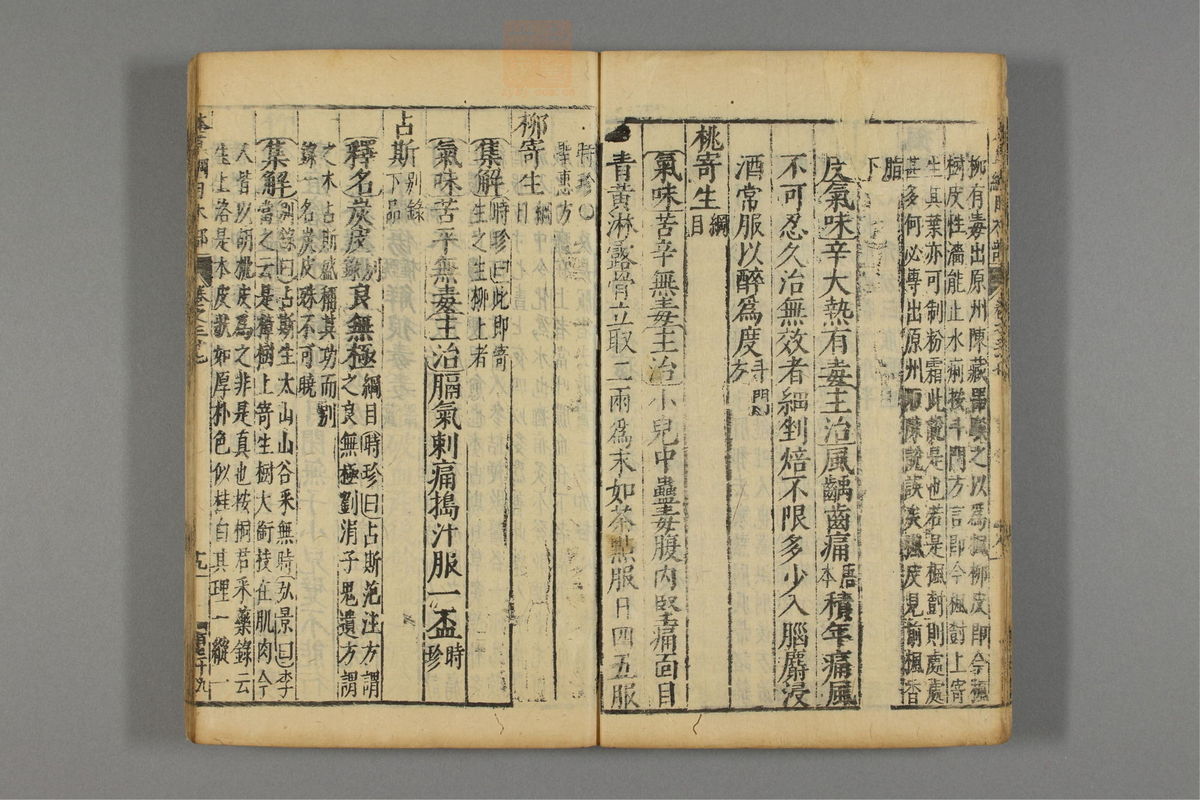 柳有毒出原州陳藏器馭之以爲楓柳皮即今楓
樹皮性濇能止水痢按斗門方言即今楓樹上寄
生其葉亦可制粉霜此說是也若是楓樹則處處
甚多何必專出原州耶陳說誤矣楓皮見前楓香
脂
下
皮氣味辛大熱有毒主治風齲齒痛唐本積年痛風
不可忍久治無效者細剉焙不限多少入腦麝浸
酒常服以醉爲度斗門方
桃寄生綱目
氣味苦辛無毒主治小兒中蠱毒腹內堅痛面目
青黃淋露骨立取二兩爲末如茶點服日四五服
時珍
聖惠方
柳寄生綱目
集解時珍曰此即寄
生之生柳上者
氣味苦平無毒主治膈氣刺痛搗汁服一盃時珍
占斯別錄下品
釋名炭皮別錄良無極綱目時珍曰占斯范汪方謂
之良無極劉涓子鬼遺方謂
之木占斯盛稱其功而別
錄一名炭皮殊不可曉
集解別錄曰占斯生太山山谷采無時弘景曰李
當之云是樟樹上寄生樹大銜枝在肌肉今
人皆以胡桃皮爲之非是真也按桐君采藥錄云
生上洛是木皮狀如厚朴色似桂白其理一縱一